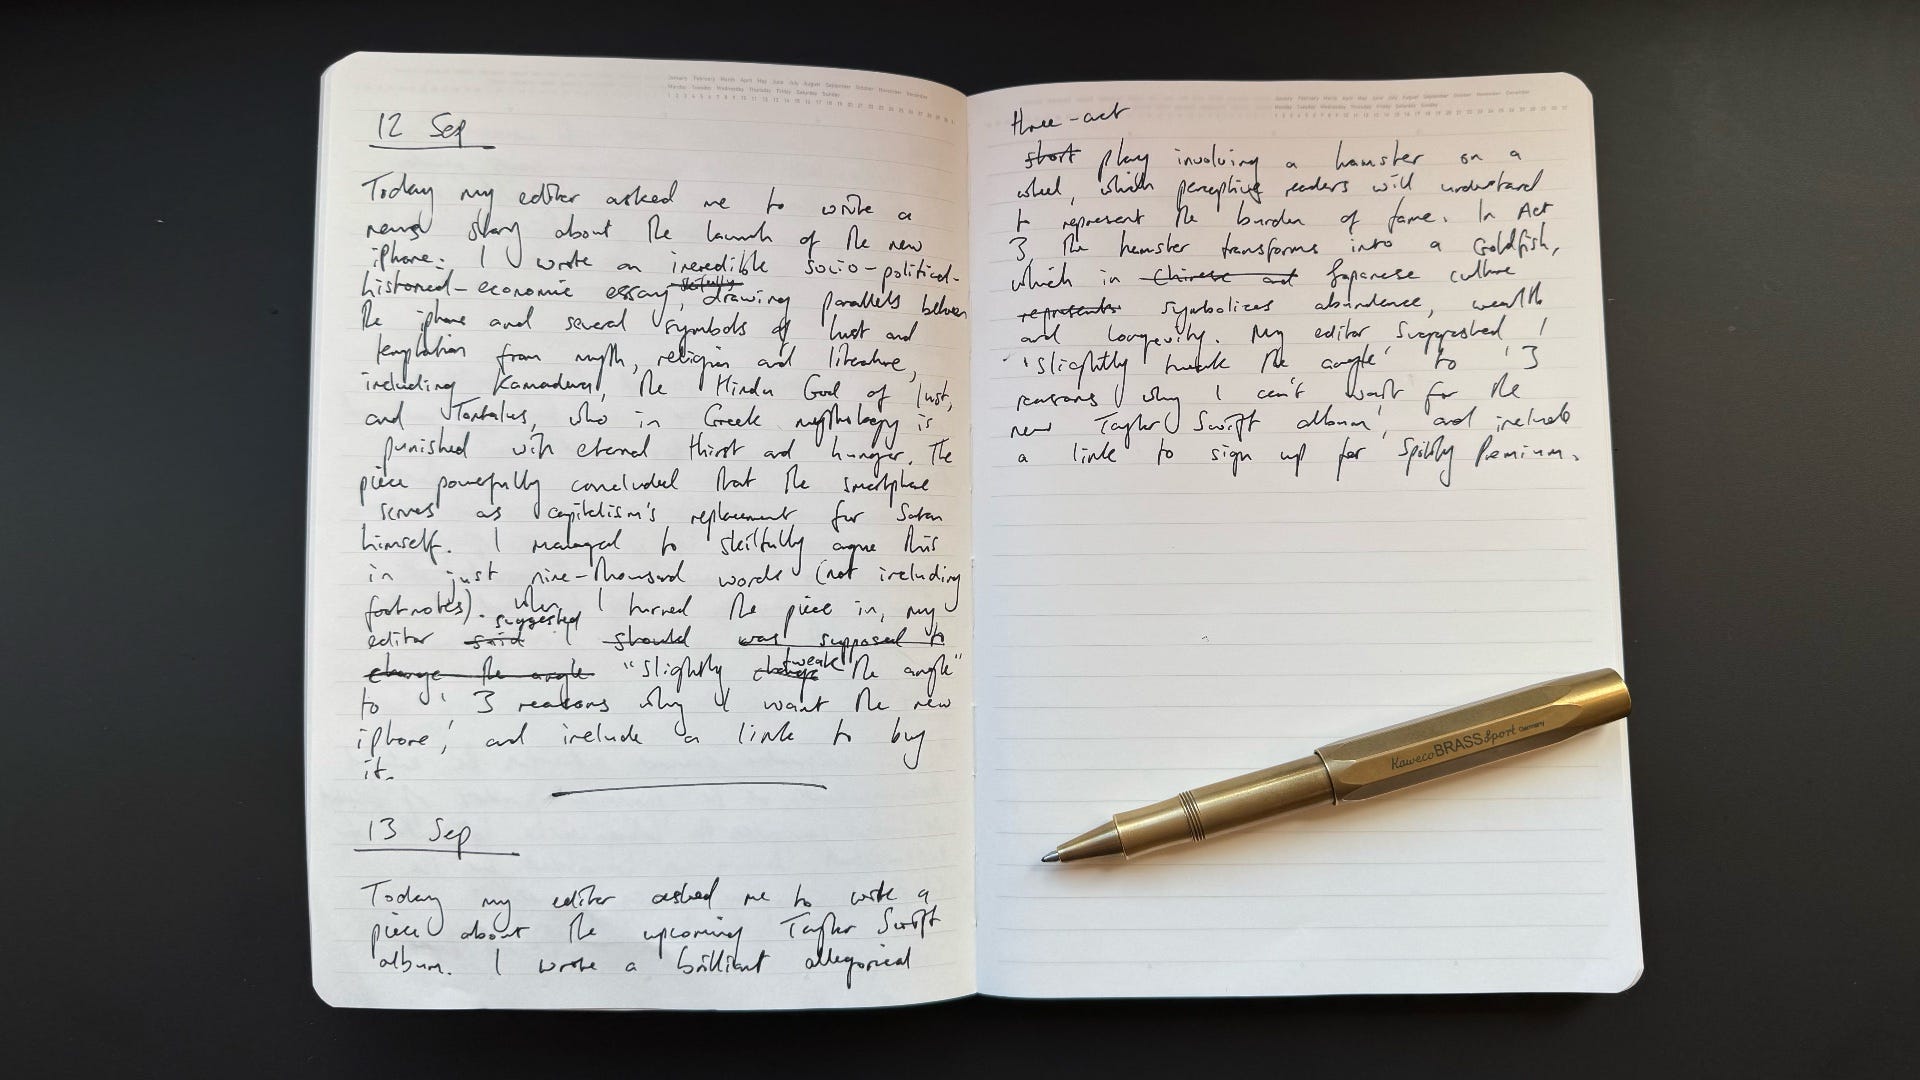 January February March April May June July August September October November December
Monday Tuesday Wednesday Thursday Friday Saturday Sunday
12 Sep
Today my editor asked me to write a
news story about the launch of the new
iphone. I wrote an incredible socio-political-
historical-economic essay, skilfully drawing parallels between
the iphone and several symbols of lust and
temptation from myth, religion and literature,
including Kamadeva, the Hindu God of lust,
and Tantalus, who in Greek mythology is
punished with eternal thirst and hunger. The
piece powerfully concluded that the smartphone
serves as capitalism's replacement for Satan
himself. I managed to skilfully argue this
in just nine-thousand words (not including
footnotes). When I turned the piece in, my
suggested
editor said I should was supposed to
tweak
change the angle "slightly change the angle"
to '3 reasons why I want the new
iphone', and include a link to buy
it.
13 Sep
Today my editor asked me to write a
piece about the upcoming Taylor Swift
album. I wrote a brilliant allegorical
January February March April May June July August September October November December
Monday Tuesday Wednesday Thursday Friday Saturday Sunday
three-act
short play involving a hamster on a
wheel, which perceptive readers will understand
to represent the burden of fame. In Act
3 the hamster transforms into a Goldfish,
which in Chinese and Japanese culture
represents symbolizes abundance, wealth
and longevity. My editor suggested I
'slightly tweak the angle' to '3
reasons why I can't wait for the
new Taylor Swift album', and include
a link to sign up for Spotify Premium.
Kaweco BRASS Sport Germany